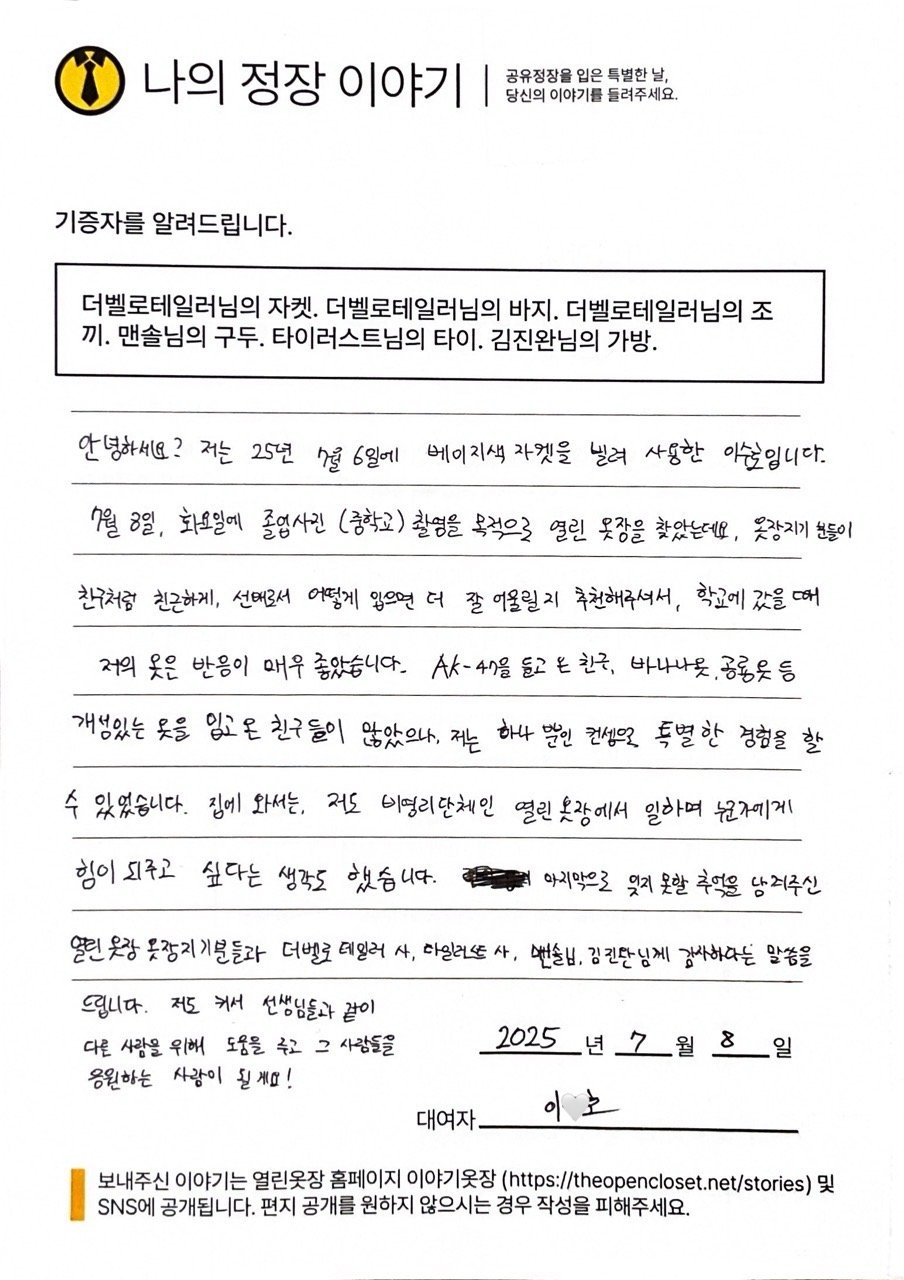 나의 정장 이야기
공유정장을 입은 특별한 날,
당신의 이야기를 들려주세요.
기증자를 알려드립니다.
더벨로테일러님의 자켓. 더벨로테일러님의 바지. 더벨로테일러님의 조
끼. 맨솔님의 구두. 타이러스트님의 타이. 김진완님의 가방.
안녕하세요? 저는 25년 7월 6일에 베이지색 자켓을 빌려 사용한
7월 8일, 화요일에 졸업사진 (중학교) 촬영을 목적으로 열린 옷장을 찾았는데요, 옷장지기 분들이
친구처럼 친근하게, 선배로서 어떻게 입으면 더 잘 어울릴지 추천해주셔서, 학교에 갔을 때
저의 옷은 반응이 매우 좋았습니다. AK-47을 들고 온 친구, 바나나옷, 공룡옷 등
개성있는 옷을 입고 온 친구들이 많았으나, 저는 하나 뿐인 컨셉으로 특별한 경험을 할
수 있었습니다. 집에 와서는, 저도 비영리단체인 열린옷장에서 일하며 누군가에게
힘이 되주고 싶다는 생각도 했습니다. 마지막으로 잊지 못할 추억을 남겨주신
열린 옷장 옷장지기분들과 더벨로 테일러 사, 타이러스트 사, 맨솔님, 김진완님께 감사하다는 말씀을
드립니다. 저도 커서 선생님들과 같이
다른 사람을 위해 도움을 주고 그 사람들을
응원하는 사람이 될게요!
2025 년 7 월 8 일
대여자 이🤍호
보내주신 이야기는 열린옷장 홈페이지 이야기옷장 (https://theopencloset.net/stories) 및
SNS에 공개됩니다. 편지 공개를 원하지 않으시는 경우 작성을 피해주세요.